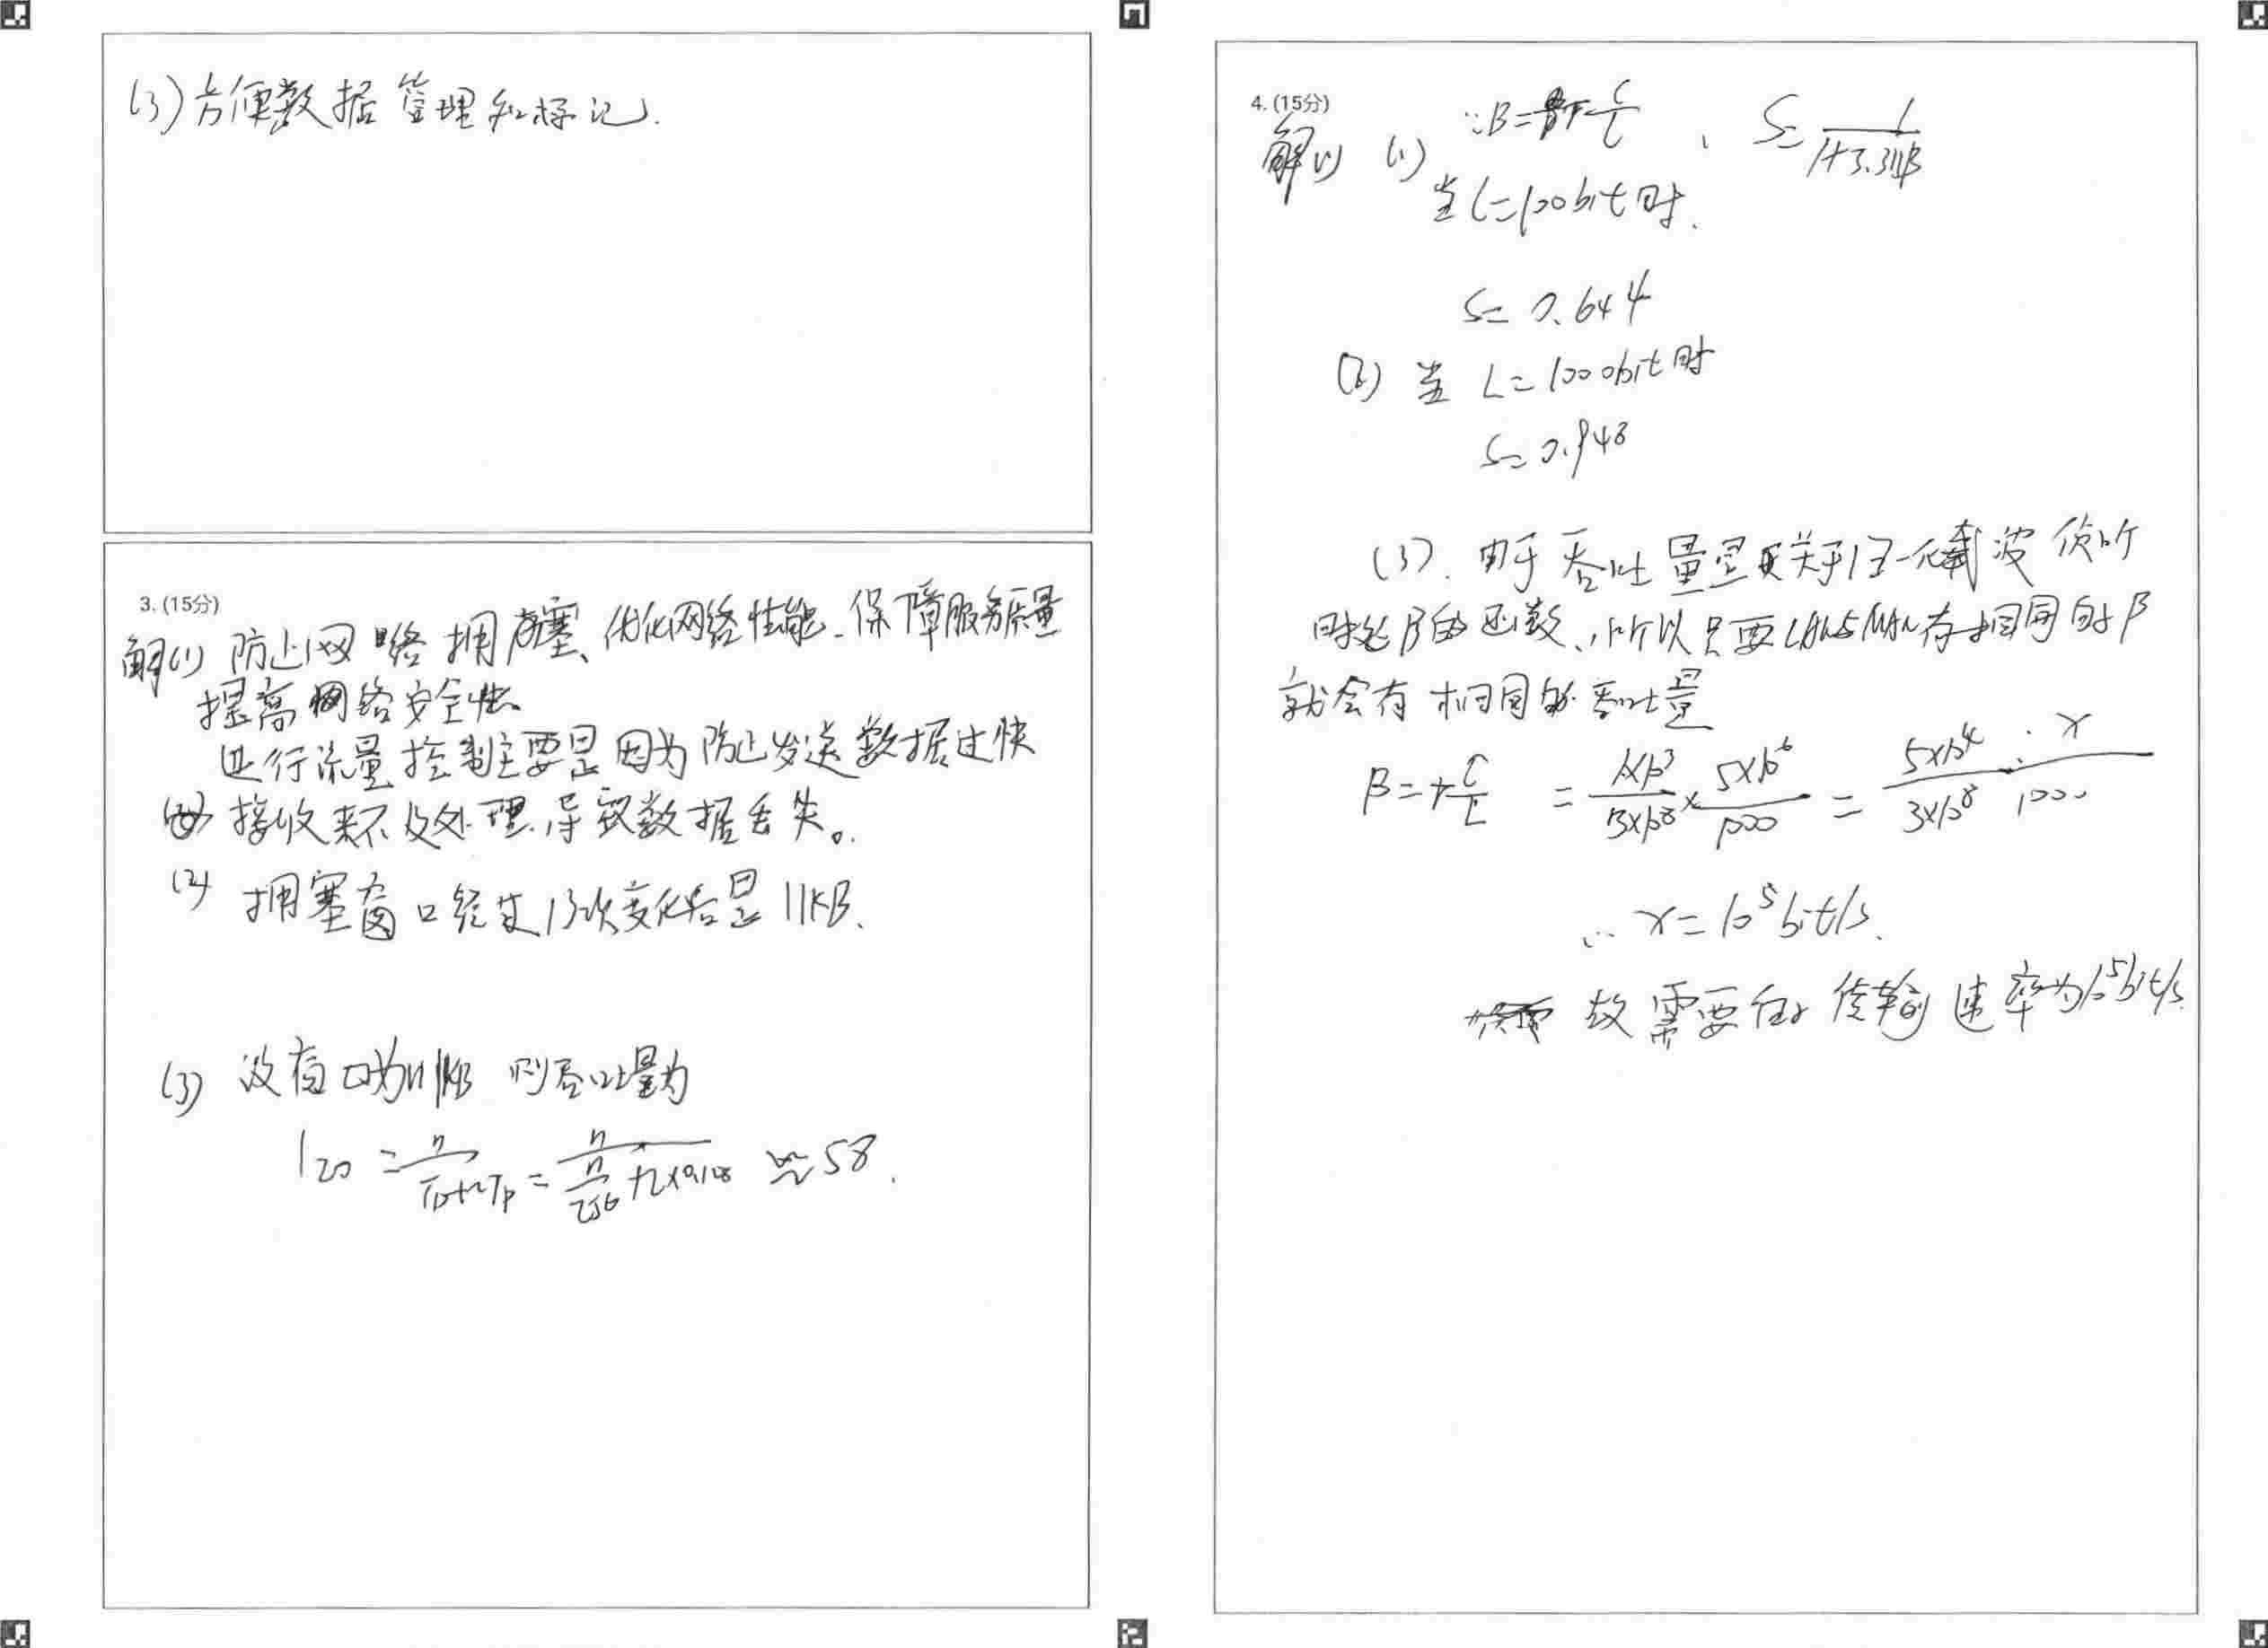 (3) 方便数据管理和标记.
3. (15分)
解(1) 防止网络拥塞、优化网络性能、保障服务质量
提高网络安全性。
进行流量控制主要是因为防止发送数据过快
接收来不及处理.导致数据丢失。
(2) 拥塞窗口经过13次变化后是11KB.
(3) 设窗口为n KB 则吞吐量为
120 = n/(TD+2Tp) = n/(n/256 + 2×0.128) ≈ 58.
4. (15分)
解(1) (1) ∵B= C/L 、 S= 1/(1+3.31β)
当L=100bit时.
S=0.644
(2) 当 L=1000bit时
S=0.948
(3). 由于吞吐量是关于归一化载波侦听
时延β的函数、所以只要LAN与MAN有相同的β
就会有相同的吞吐量
β=τC/L = 1×10³/3×10⁸ × 5×10⁶/1000 = 5×10⁴/3×10⁸ · x/1000
∴ x=10⁵bit/s.
故需要的传输速率为10⁵bit/s